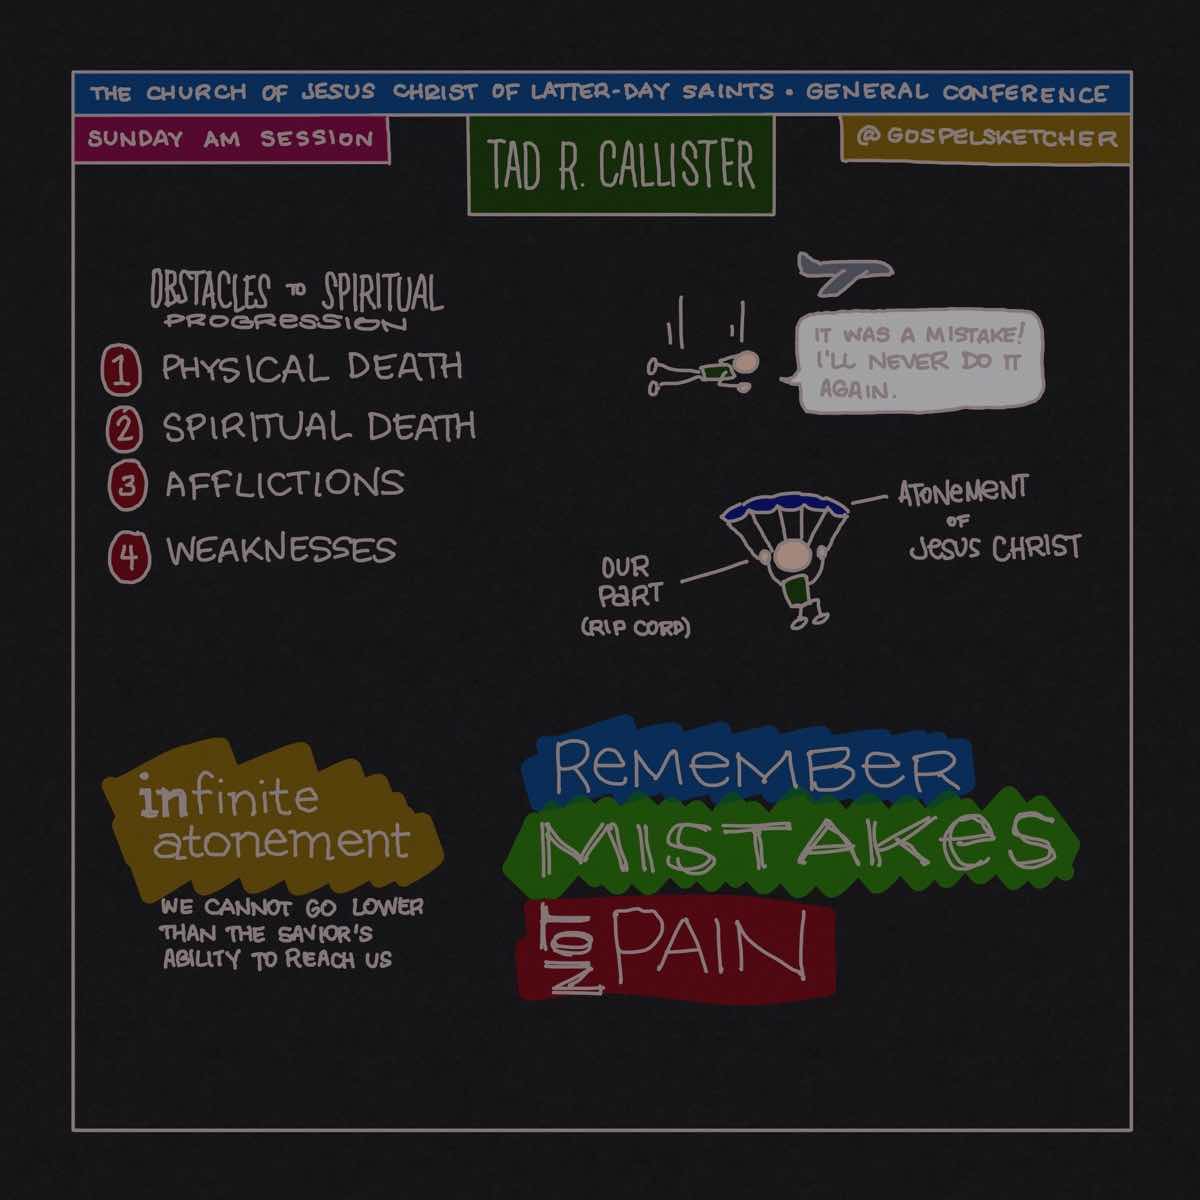 THE CHURCH OF JESUS CHRIST OF LATTER-DAY SAINTS • GENERAL CONFERENCE
SUNDAY AM SESSION
TAD R. CALLISTER
@GOSPELSKETCHER
OBSTACLES TO SPIRITUAL
PROGRESSION
1 PHYSICAL DEATH
2 SPIRITUAL DEATH
3 AFFLICTIONS
4 WEAKNESSES
IT WAS A MISTAKE!
I'LL NEVER DO IT
AGAIN.
ATONEMENT
OF
JESUS CHRIST
OUR
PART
(RIP CORD)
infinite
atonement
WE CANNOT GO LOWER
THAN THE SAVIOR'S
ABILITY TO REACH US
REMEMBER
MISTAKES
NOT PAIN